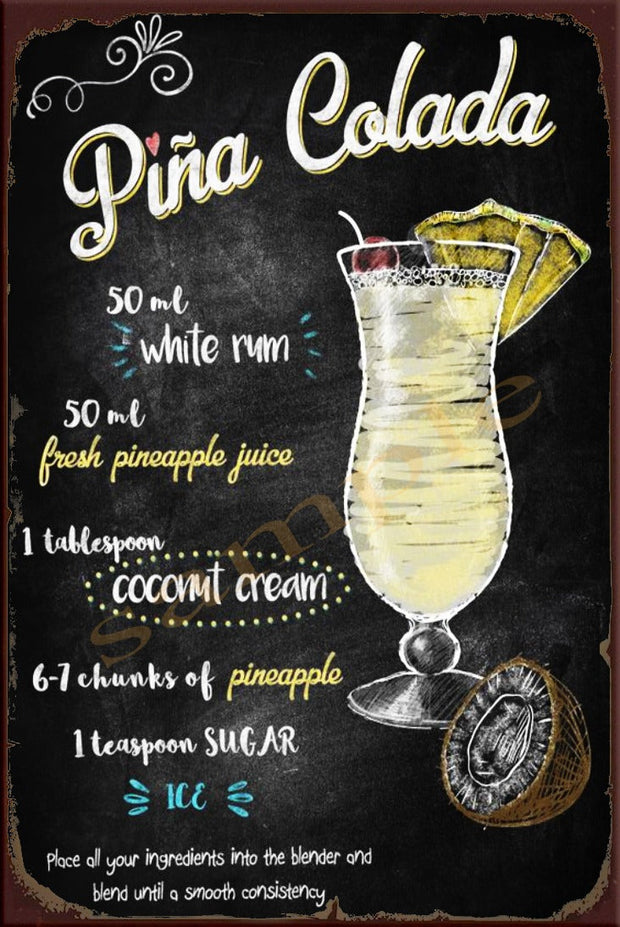 Piña Colada
50 ml
white rum
50 ml
fresh pineapple juice
1 tablespoon
coconut cream
6-7 chunks of pineapple
1 teaspoon SUGAR
ICE
Place all your ingredients into the blender and
blend until a smooth consistency
sample